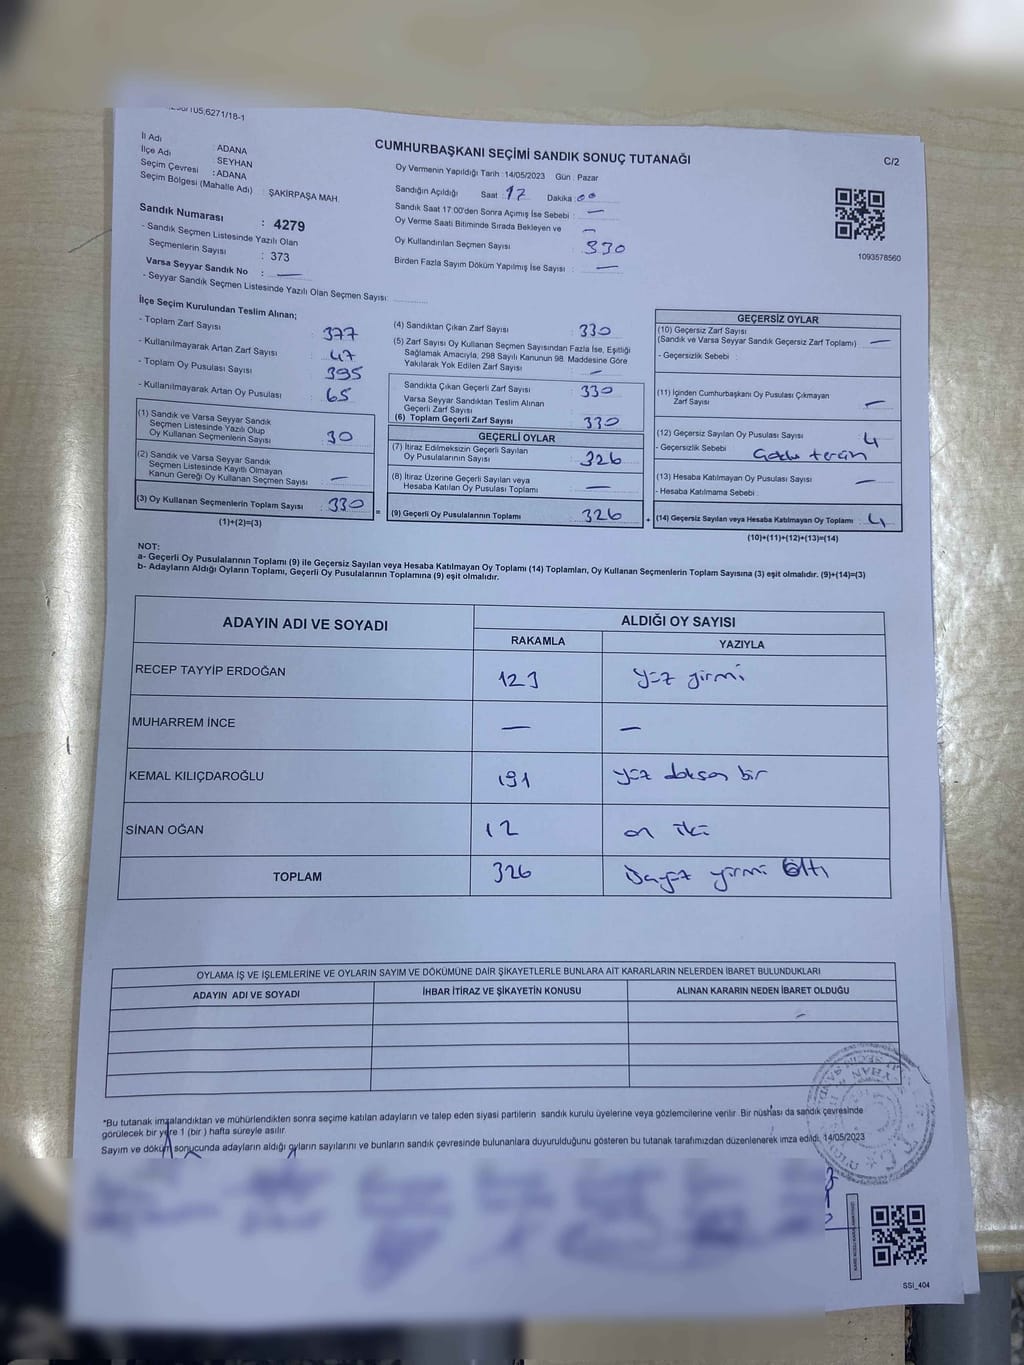 6271/18-1
İl Adı : ADANA
İlçe Adı : SEYHAN
Seçim Çevresi : ADANA
Seçim Bölgesi (Mahalle Adı) : ŞAKİRPAŞA MAH.
Sandık Numarası : 4279
- Sandık Seçmen Listesinde Yazılı Olan
Seçmenlerin Sayısı : 373
Varsa Seyyar Sandık No : —
- Seyyar Sandık Seçmen Listesinde Yazılı Olan Seçmen Sayısı:
CUMHURBAŞKANI SEÇİMİ SANDIK SONUÇ TUTANAĞI
C/2
Oy Vermenin Yapıldığı Tarih : 14/05/2023 Gün : Pazar
Sandığın Açıldığı Saat : 17 Dakika : 00
Sandık Saat 17:00'den Sonra Açımış İse Sebebi : —
Oy Verme Saati Bitiminde Sırada Bekleyen ve —
Oy Kullandırılan Seçmen Sayısı : 330
Birden Fazla Sayım Döküm Yapılmış İse Sayısı : —
1093578560
İlçe Seçim Kurulundan Teslim Alınan;
- Toplam Zarf Sayısı : 377
- Kullanılmayarak Artan Zarf Sayısı : 47
- Toplam Oy Pusulası Sayısı : 395
- Kullanılmayarak Artan Oy Pusulası : 65
(1) Sandık ve Varsa Seyyar Sandık
Seçmen Listesinde Yazılı Olup
Oy Kullanan Seçmenlerin Sayısı : 30
(2) Sandık ve Varsa Seyyar Sandık
Seçmen Listesinde Kayıtlı Olmayan
Kanun Gereği Oy Kullanan Seçmen Sayısı : —
(3) Oy Kullanan Seçmenlerin Toplam Sayısı : 330
(1)+(2)=(3)
(4) Sandıktan Çıkan Zarf Sayısı : 330
(5) Zarf Sayısı Oy Kullanan Seçmen Sayısından Fazla İse, Eşitliği
Sağlamak Amacıyla, 298 Sayılı Kanunun 98. Maddesine Göre
Yakılarak Yok Edilen Zarf Sayısı : —
Sandıkta Çıkan Geçerli Zarf Sayısı : 330
Varsa Seyyar Sandıktan Teslim Alınan
Geçerli Zarf Sayısı :
(6) Toplam Geçerli Zarf Sayısı : 330
GEÇERLİ OYLAR
(7) İtiraz Edilmeksizin Geçerli Sayılan
Oy Pusulalarının Sayısı : 326
(8) İtiraz Üzerine Geçerli Sayılan veya
Hesaba Katılan Oy Pusulası Toplamı : —
= (9) Geçerli Oy Pusulalarının Toplamı : 326
GEÇERSİZ OYLAR
(10) Geçersiz Zarf Sayısı
(Sandık ve Varsa Seyyar Sandık Geçersiz Zarf Toplamı) : —
- Geçersizlik Sebebi :
(11) İçinden Cumhurbaşkanı Oy Pusulası Çıkmayan
Zarf Sayısı : —
(12) Geçersiz Sayılan Oy Pusulası Sayısı : 4
- Geçersizlik Sebebi :
(13) Hesaba Katılmayan Oy Pusulası Sayısı : —
- Hesaba Katılmama Sebebi :
+ (14) Geçersiz Sayılan veya Hesaba Katılmayan Oy Toplamı : 4
(10)+(11)+(12)+(13)=(14)
NOT:
a- Geçerli Oy Pusulalarının Toplamı (9) ile Geçersiz Sayılan veya Hesaba Katılmayan Oy Toplamı (14) Toplamları, Oy Kullanan Seçmenlerin Toplam Sayısına (3) eşit olmalıdır. (9)+(14)=(3)
b- Adayların Aldığı Oyların Toplamı, Geçerli Oy Pusulalarının Toplamına (9) eşit olmalıdır.
ADAYIN ADI VE SOYADI
ALDIĞI OY SAYISI
RAKAMLA YAZIYLA
RECEP TAYYİP ERDOĞAN 123 yüz yirmi
MUHARREM İNCE — —
KEMAL KILIÇDAROĞLU 191 yüz doksan bir
SİNAN OĞAN 12 on iki
TOPLAM 326 üçyüz yirmi altı
OYLAMA İŞ VE İŞLEMLERİNE VE OYLARIN SAYIM VE DÖKÜMÜNE DAİR ŞİKAYETLERLE BUNLARA AİT KARARLARIN NELERDEN İBARET BULUNDUKLARI
ADAYIN ADI VE SOYADI İHBAR İTİRAZ VE ŞİKAYETİN KONUSU ALINAN KARARIN NEDEN İBARET OLDUĞU
*Bu tutanak imzalandıktan ve mühürlendikten sonra seçime katılan adayların ve talep eden siyasi partilerin sandık kurulu üyelerine veya gözlemcilerine verilir. Bir nüshası da sandık çevresinde
görülecek bir yere 1 (bir ) hafta süreyle asılır.
Sayım ve döküm sonucunda adayların aldığı oyların sayılarını ve bunların sandık çevresinde bulunanlara duyurulduğunu gösteren bu tutanak tarafımızdan düzenlenerek imza edildi. 14/05/2023
SSI_404